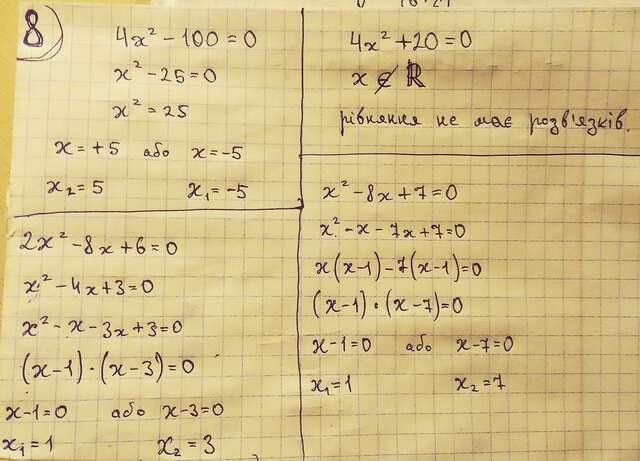 8)
4x² - 100 = 0
x² - 25 = 0
x² = 25
x = +5 або x = -5
x₂ = 5 x₁ = -5
4x² + 20 = 0
x ∉ ℝ
рівняння не має розв'язків.
2x² - 8x + 6 = 0
x² - 4x + 3 = 0
x² - x - 3x + 3 = 0
(x-1) · (x-3) = 0
x-1=0 або x-3=0
x₁ = 1 x₂ = 3
x² - 8x + 7 = 0
x² - x - 7x + 7 = 0
x(x-1) - 7(x-1) = 0
(x-1) · (x-7) = 0
x-1=0 або x-7=0
x₁ = 1 x₂ = 7